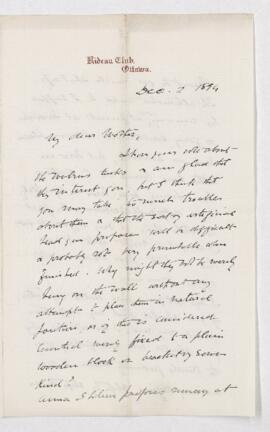 Rideau Club,
Ottawa.
Dec. 2 1894
My dear
I have your note about
the walrus tusks & am glad that
they interest you, but I think that
you may take too much trouble
about them & that the sort of artificial
head you propose will be difficult
& probably not very presentable when
finished. Why might they not be merely
hung on the wall without any
attempt to place them in natural
position or if this is considered
essential merely fixed to a plain
wooden block or bracket of some
kind?
Anna & I propose